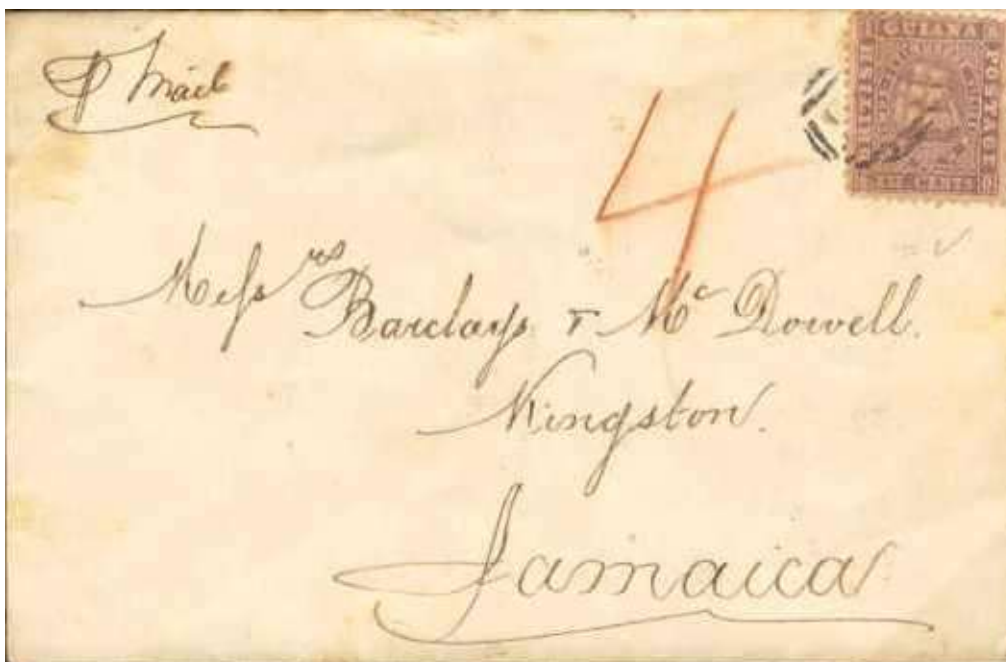 ℘ Mail
4
BRITISH GUIANA POSTAGE
Messrs Barclays & Mc Dowell.
Kingston.
Jamaica